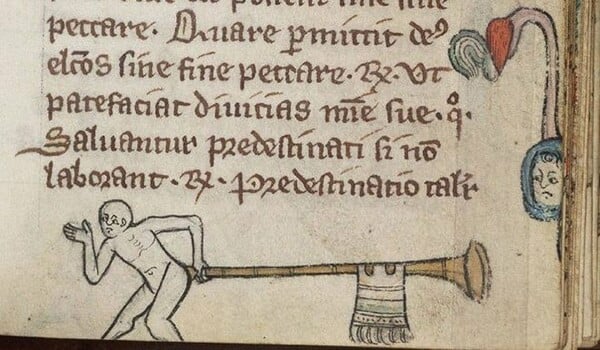 peccare. Quare ꝑmittit deꝰ
elc̄os sine fine peccare. R̄. Vt
patefaciat diuicias mīe sue. qͦ.
Saluantur predestinati si nō
laborant. R̄. Predestinatio talr̄